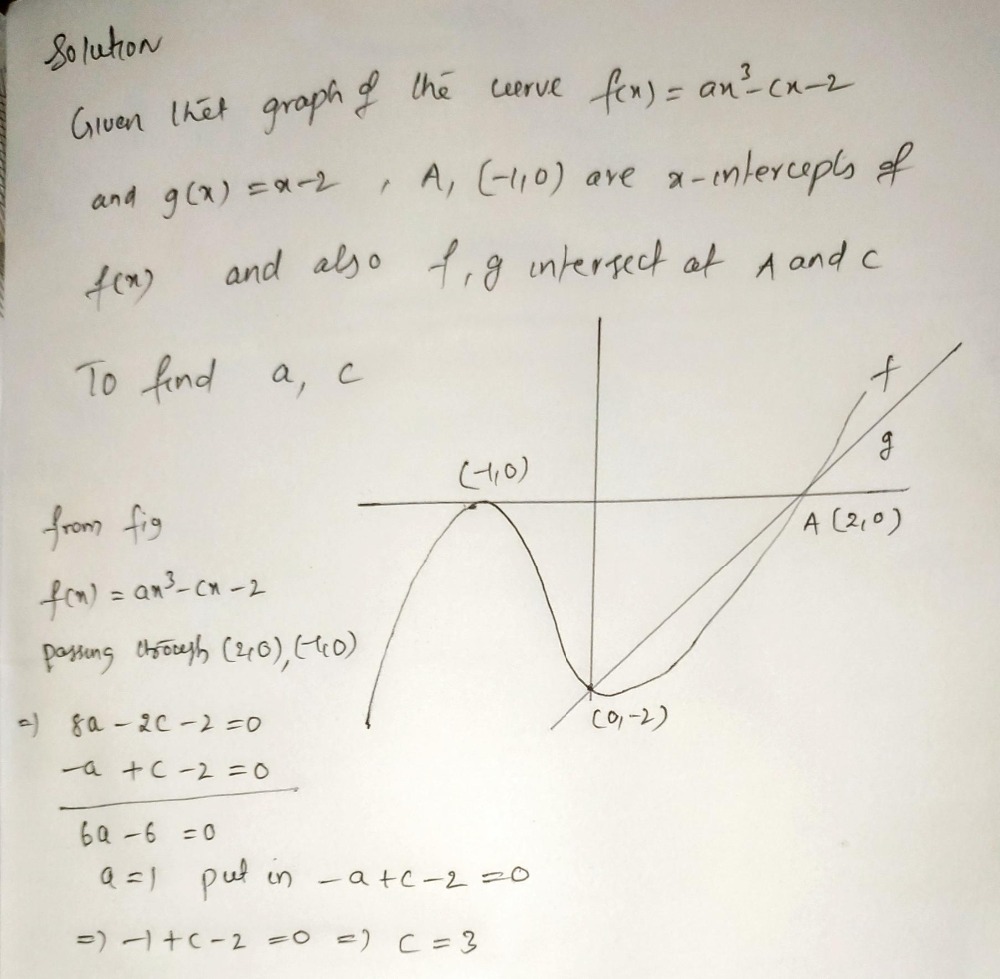 Solution
Given thet graph of the curve f(x) = ax³-cx-2
and g(x) = x-2 , A, (-1,0) are x-intercepts of
f(x) and also f, g intersect at A and C
To find a, c
f
g
(-1,0)
A (2,0)
(0,-2)
from fig
f(x) = ax³-cx-2
passing through (2,0), (-1,0)
=) 8a - 2c - 2 = 0
-a + c - 2 = 0
6a - 6 = 0
a = 1 put in -a + c - 2 = 0
=) -1 + c - 2 = 0 =) c = 3